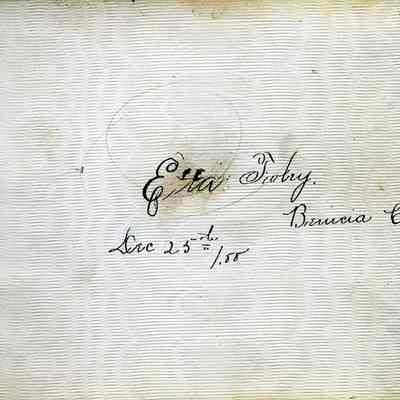 Etta Foley.
Benicia C
Dec 25th /.00